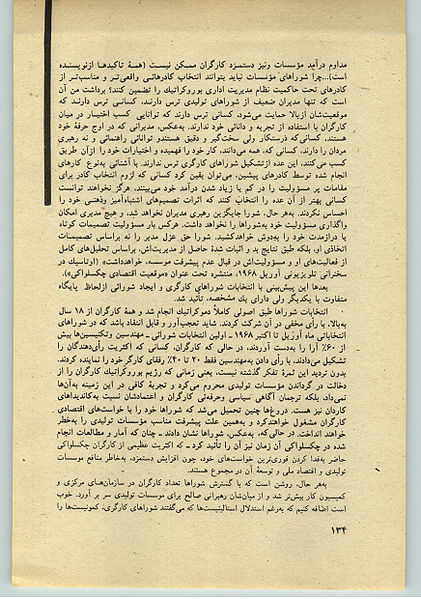 مداوم درآمد مؤسسات ونیز دستمزد کارگران ممکن نیست (همهٔ تاکیدها ازنویسنده
است)...چرا شوراهای مؤسسات نباید بتوانند انتخاب کادرهائی واقعی‌تر و مناسب‌تر از
کادرهای تحت حاکمیت نظام مدیریت اداری بوروکراتیک را تضمین کنند؟ برداشت من آن
است که تنها مدیران ضعیف از شوراهای تولیدی ترس دارند، کسانی ترس دارند که
موقعیت‌شان ازبالا حمایت می‌شود، کسانی ترس دارند که توانایی کسب اختیار در میان
کارگران با استفاده از تجربه و دانائی خود ندارند. به‌عکس، مدیرانی که در اوج حرفهٔ خود
هستند، کسانی‌که درستکار ولی سخت‌گیر و دقیق هستندو توانائی راهنمائی و نه رهبری
مردان را دارند، کسانی که، همه می‌دانند، کار خود را فهمیده و اختیارات خود را ازآن طریق
کسب می‌کنند، این عده ازتشکیل شوراهای کارگری ترس ندارند. با آشنائی به‌نوع کارهای
انجام شده توسط کادرهای پیشین، می‌توان یقین کرد کسانی که لزوم انتخاب کادر برای
مقامات پر مسؤولیت را در کم یا زیاد شدن درآمد خود می‌بینند، هرگز نخواهند توانست
کسانی بهتر از آن عده را انتخاب کنند که اثرات تصمیم‌های اشتباه‌آمیز وذهنی خود را
احساس نکردند. به‌هر حال، شورا جایگزین رهبری مدیران نخواهد شد، و هیچ مدیری امکان
واگذاری مسؤولیت خود به‌شوراها را نخواهد داشت. هرکس بار مسؤولیت تصمیمات کوتاه
یا درازمدت خود را به‌دوش خواهدکشید. شورا حق عزل مدیر را نه براساس تصمیمات
انتخابی او، بلکه طبق نتایج بد و اثبات شدهٔ حاصل از مدیریت‌اش، براساس تحلیل‌های کامل
از فعالیت‌های او و مسؤولیت‌اش در قبال عدم پیشرفت موسسه، خواهدداشت» (اوتاسیک در
سخنرانی تلویزیونی آوریل ۱۹۶۸، منتشره تحت عنوان «موقعیت اقتصادی چکسلواکی»).
بعدها این پیش‌بینی با انتخابات شوراهای کارگری و ایجاد شورائی ازلحاظ پایگاه
متفاوت با یکدیگر ولی دارای یك مشخصه، تأئید شد.
انتخابات شوراها طبق اصولی کاملاً دموکراتیک انجام شد و همهٔ کارگران از ۱۸ سال
به‌بالا، با رأی مخفی در آن شرکت کردند. شاید تعجب‌آور و قابل انتقاد باشد که در شوراهای
انتخاباتی ماه آوریل تا اکتبر ۱۹۶۸ ـ اولین انتخابات شورائی ـ مهندسین وتکنیسین‌ها بیش
از ۶۰٪ آرا را به‌دست آوردند، در حالی که کارگران، کسانی که اکثریت رأی‌دهندگان را
تشکیل می‌دادند، با رأی دادن به‌مهندسین فقط ۲۰ تا ۴۰٪ رفقای کارگر خود را نماینده کردند.
بدون تردید این ثمرهٔ تفکر گذشته نیست، یعنی زمانی که رژیم بوروکراتیک کارگران را از
دخالت در گرداندن مؤسسات تولیدی محروم می‌کرد و تجربهٔ کافی در این زمینه به‌آن‌ها
نمی‌داد، بلکه ترجمان آگاهی سیاسی وحرفه‌ئی کارگران و اعتمادشان نسبت به‌کاندیداهای
کاردان نیز هست. دروغ‌ها چنین تحمیل می‌شد که شوراها خود را با خواست‌های اقتصادی
کارگران مشغول خواهندکرد و به‌همین علت پیشرفت مناسب مؤسسات تولیدی را به‌خطر
خواهند انداخت. در حالی‌که، به‌عکس، شوراها نشان دادند ـ چنان که آمار و مطالعات انجام
شده در چکسلواکی آن زمان نیز آن را تأئید کرد ـ که اکثریت عظیمی از کارگران چکسلواکی
حاضر به‌فدا کردن فوری‌ترین خواست‌های خود، چون افزایش دستمزد، به‌خاطر منافع موسسات
تولیدی و اقتصاد ملی و توسعهٔ آن در مجموع هستند.
به‌هر حال، روشن است که با گسترش شوراها تعداد کارگران در سازمان‌های مرکزی و
کمیسیون کار بیش‌تر شد و از میان‌شان رهبرانی صالح برای موسسات تولیدی سر بر آورد. خوب
است اضافه کنیم که به‌رغم استدلال استالینیست‌ها که می‌گفتند شوراهای کارگری، کمونیست‌ها را
۱۳۴